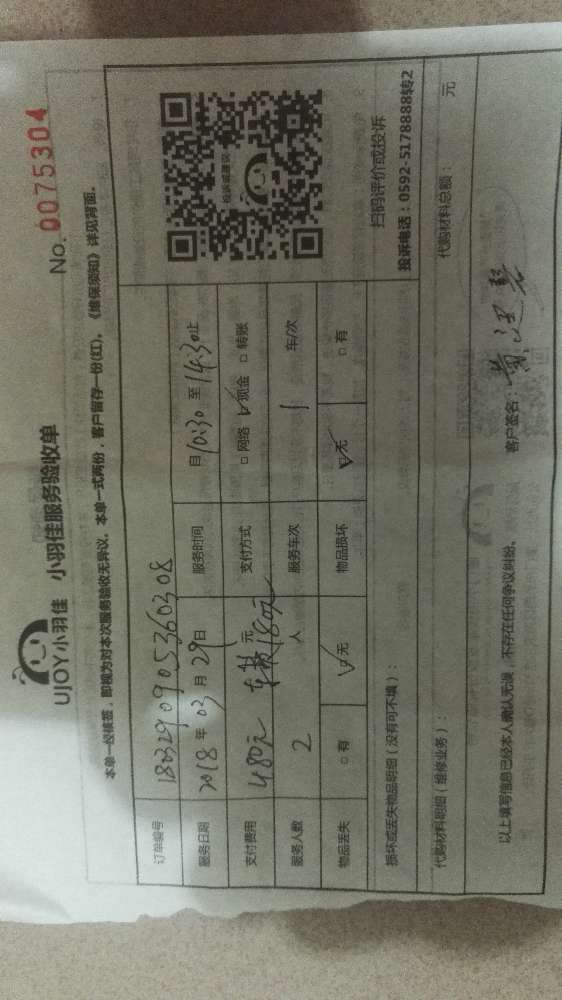 UJOY小羽佳 小羽佳服务验收单
No. 0075304
本单一经核签，即视为对本次服务验收无异议。本单一式两份，客户留存一份(红)。《维保须知》详见背面。
订单编号 1803290905360308
服务日期 2018 年 03 月 29 日 服务时间 自 10:30 至 14:30 止
支付费用 480元 元 支付方式 □ 网络 ☑ 现金 □ 转账
服务人数 2 人 服务车次 1 车/次
物品丢失 □ 有 ☑ 无 物品损坏 ☑ 无 □ 有
投诉或建议
扫码评价或投诉
投诉电话：0592-5178888转2
损坏或丢失物品明细（没有可不填）：
代购材料明细（维修业务）： 代购材料总额： 元
以上填写信息已经本人确认无误，不存在任何争议纠纷。 客户签名：